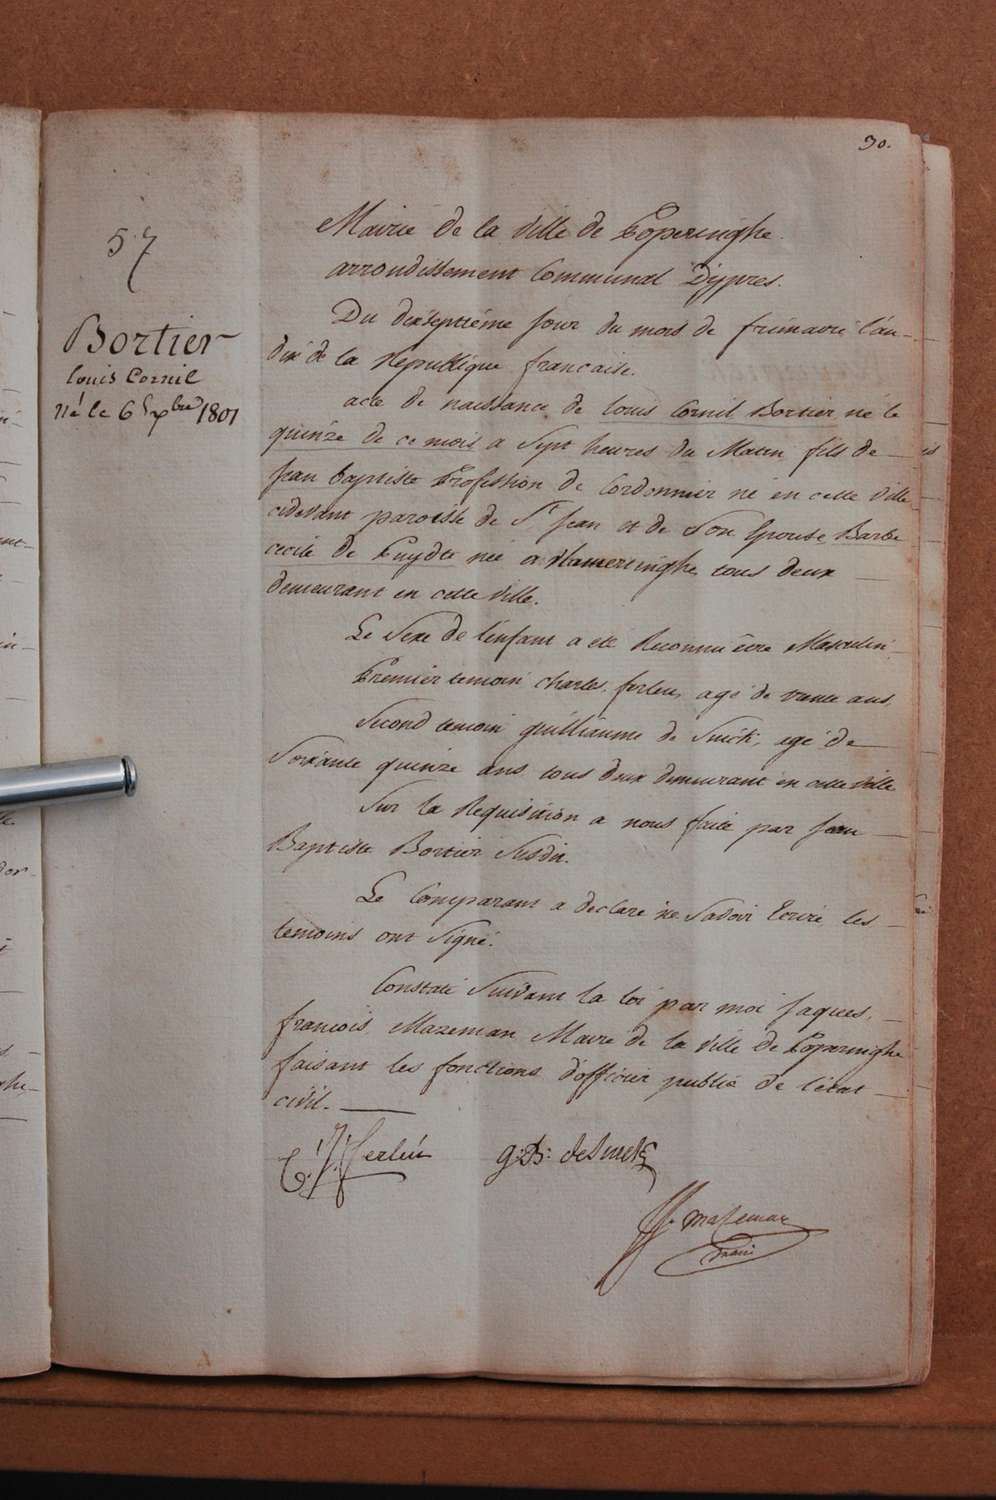 30.
57
Bortier
louis Cornil
né le 6 Xbre 1801
Mairie de la Ville de Poperinghe
arrondissement Communal D'ypres.
Du dixseptiéme jour du mois de frimaire l'an
dix de la Republique francaise.
acte de naissance de louis Cornil Bortier né le
quinze de ce mois a Sept heures du Matin fils de
Jean baptiste Profession de Cordonnier né en cette Ville
cidevant paroisse de St Jean et de Son Epouse Barbe
cecile de Puydt née a Vlamertinghe tous deux
demeurant en cette Ville.
Le Sexe de l'enfant a eté Reconnu être Masculin
Premier temoin charles ferleu, agé de trente ans
Second temoin guilliaume de Smidt, agé de
Soixante quinze ans tous deux demeurant en cette Ville
Sur la Requisition a nous faite par Jean
Baptiste Bortier Susdit.
Le Comparant a declaré ne Savoir Ecrire les
temoins ont Signé.
Constaté Suivant la loi par moi Jaques
francois Mazeman Maire de la Ville de Poperinghe
faisant les fonctions d'officier public de l'état
civil.
g:D: deSmedt
JF. Mazeman
maire